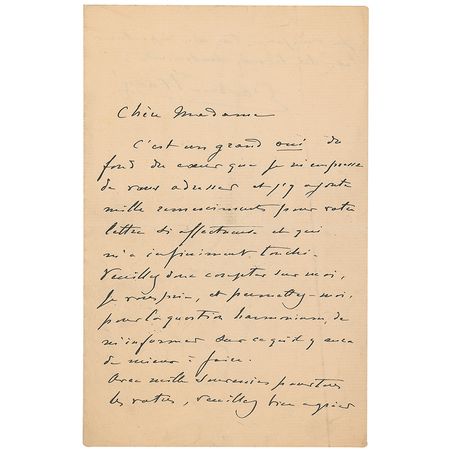 Chère Madame
C'est un grand oui du
fond du cœur que je m'empresse
de vous adresser et j'y ajoute
mille remerciements pour votre
lettre si affectueuse et qui
m'a infiniment touché.
Veuillez donc compter sur moi,
je vous prie, et permettez-moi,
pour la question harmonium, de
m'informer sur ce qu'il y aura
de mieux à faire.
Avec mille souvenirs pour tous
les vôtres, veuillez bien agréer